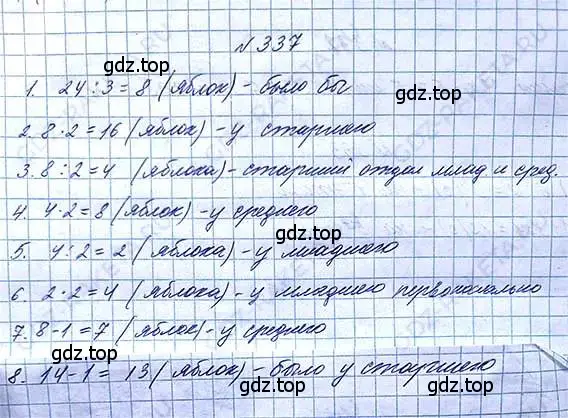 № 337
gdz.top
1. 24 : 3 = 8 (яблок) - было бы
gdz.top
2. 8 · 2 = 16 (яблок) - у старшего
3. 8 : 2 = 4 (яблока) - старший отдал млад и сред.
gdz.top
4. 4 · 2 = 8 (яблок) - у среднего
5. 4 : 2 = 2 (яблока) - у младшего
gdz.top
6. 2 · 2 = 4 (яблока) - у младшего первоначально
7. 8 - 1 = 7 (яблок) - у среднего
gdz.top
8. 14 - 1 = 13 (яблок) - было у старшего
gdz.top